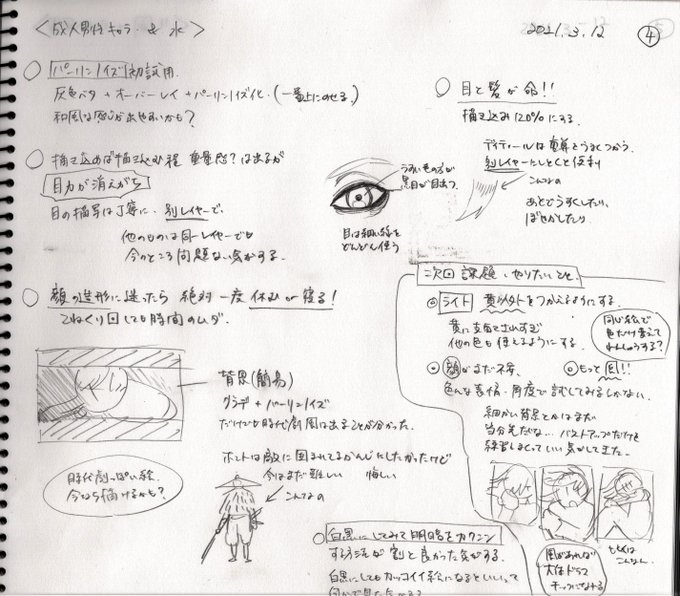 <成人男性キャラ & 水>
2021.3.12
④
○ パーリンノイズ 初試用.
灰色ベタ + オーバーレイ + パーリンノイズ化. (一番上にのせる.)
和風な感じが出せるかも?
○ 描き込めば描き込む程 重量感?は出るが
目力が消えがち
目の描写は丁寧に、別レイヤーで.
他のものは同一レイヤーでも
今のところ問題ない気がする.
○ 顔の造形に迷ったら 絶対一度休むか寝る!
こねくり回しても時間のムダ.
背景(簡易)
グラデ + パーリンノイズ
だけでも時代劇風は出ることが分かった.
ホントは敵に囲まれてるかんじにしたかったけど
今はまだ難しい 悔しい
こんなの
時代劇っぽい絵
今なら描けるかも?
○ 目と髪が命!!
描き込み120%にする.
ディティールは重算をうまくつかう.
別レイヤーにしとくと便利
こんなの
あとでうすくしたり、
ぼやかしたり.
うすい色の方が
黒目が目立つ.
目は細い線を
どんどん使う
次回課題・やりたいこと.
◎ ライト 黄以外をつかえるようにする.
黄に支配されすぎ
他の色も使えるようにする.
同じ絵で
色だけ変えて
れんしゅうする?
◎ 顔がまだ不安.
◎ もっと風!!
色んな表情・角度で試してみるしかない.
細かい背景とかはまだ
当分先だな… バストアップだけを
練習しまくっていい気がしてきた.
風があれば
大体ドラマ
チックになる
もしくは
こんなん
○ 白黒にしてみて明暗をカクニン
する方法が割と良かった気がする.
白黒にしてもカッコイイ絵になるといいって